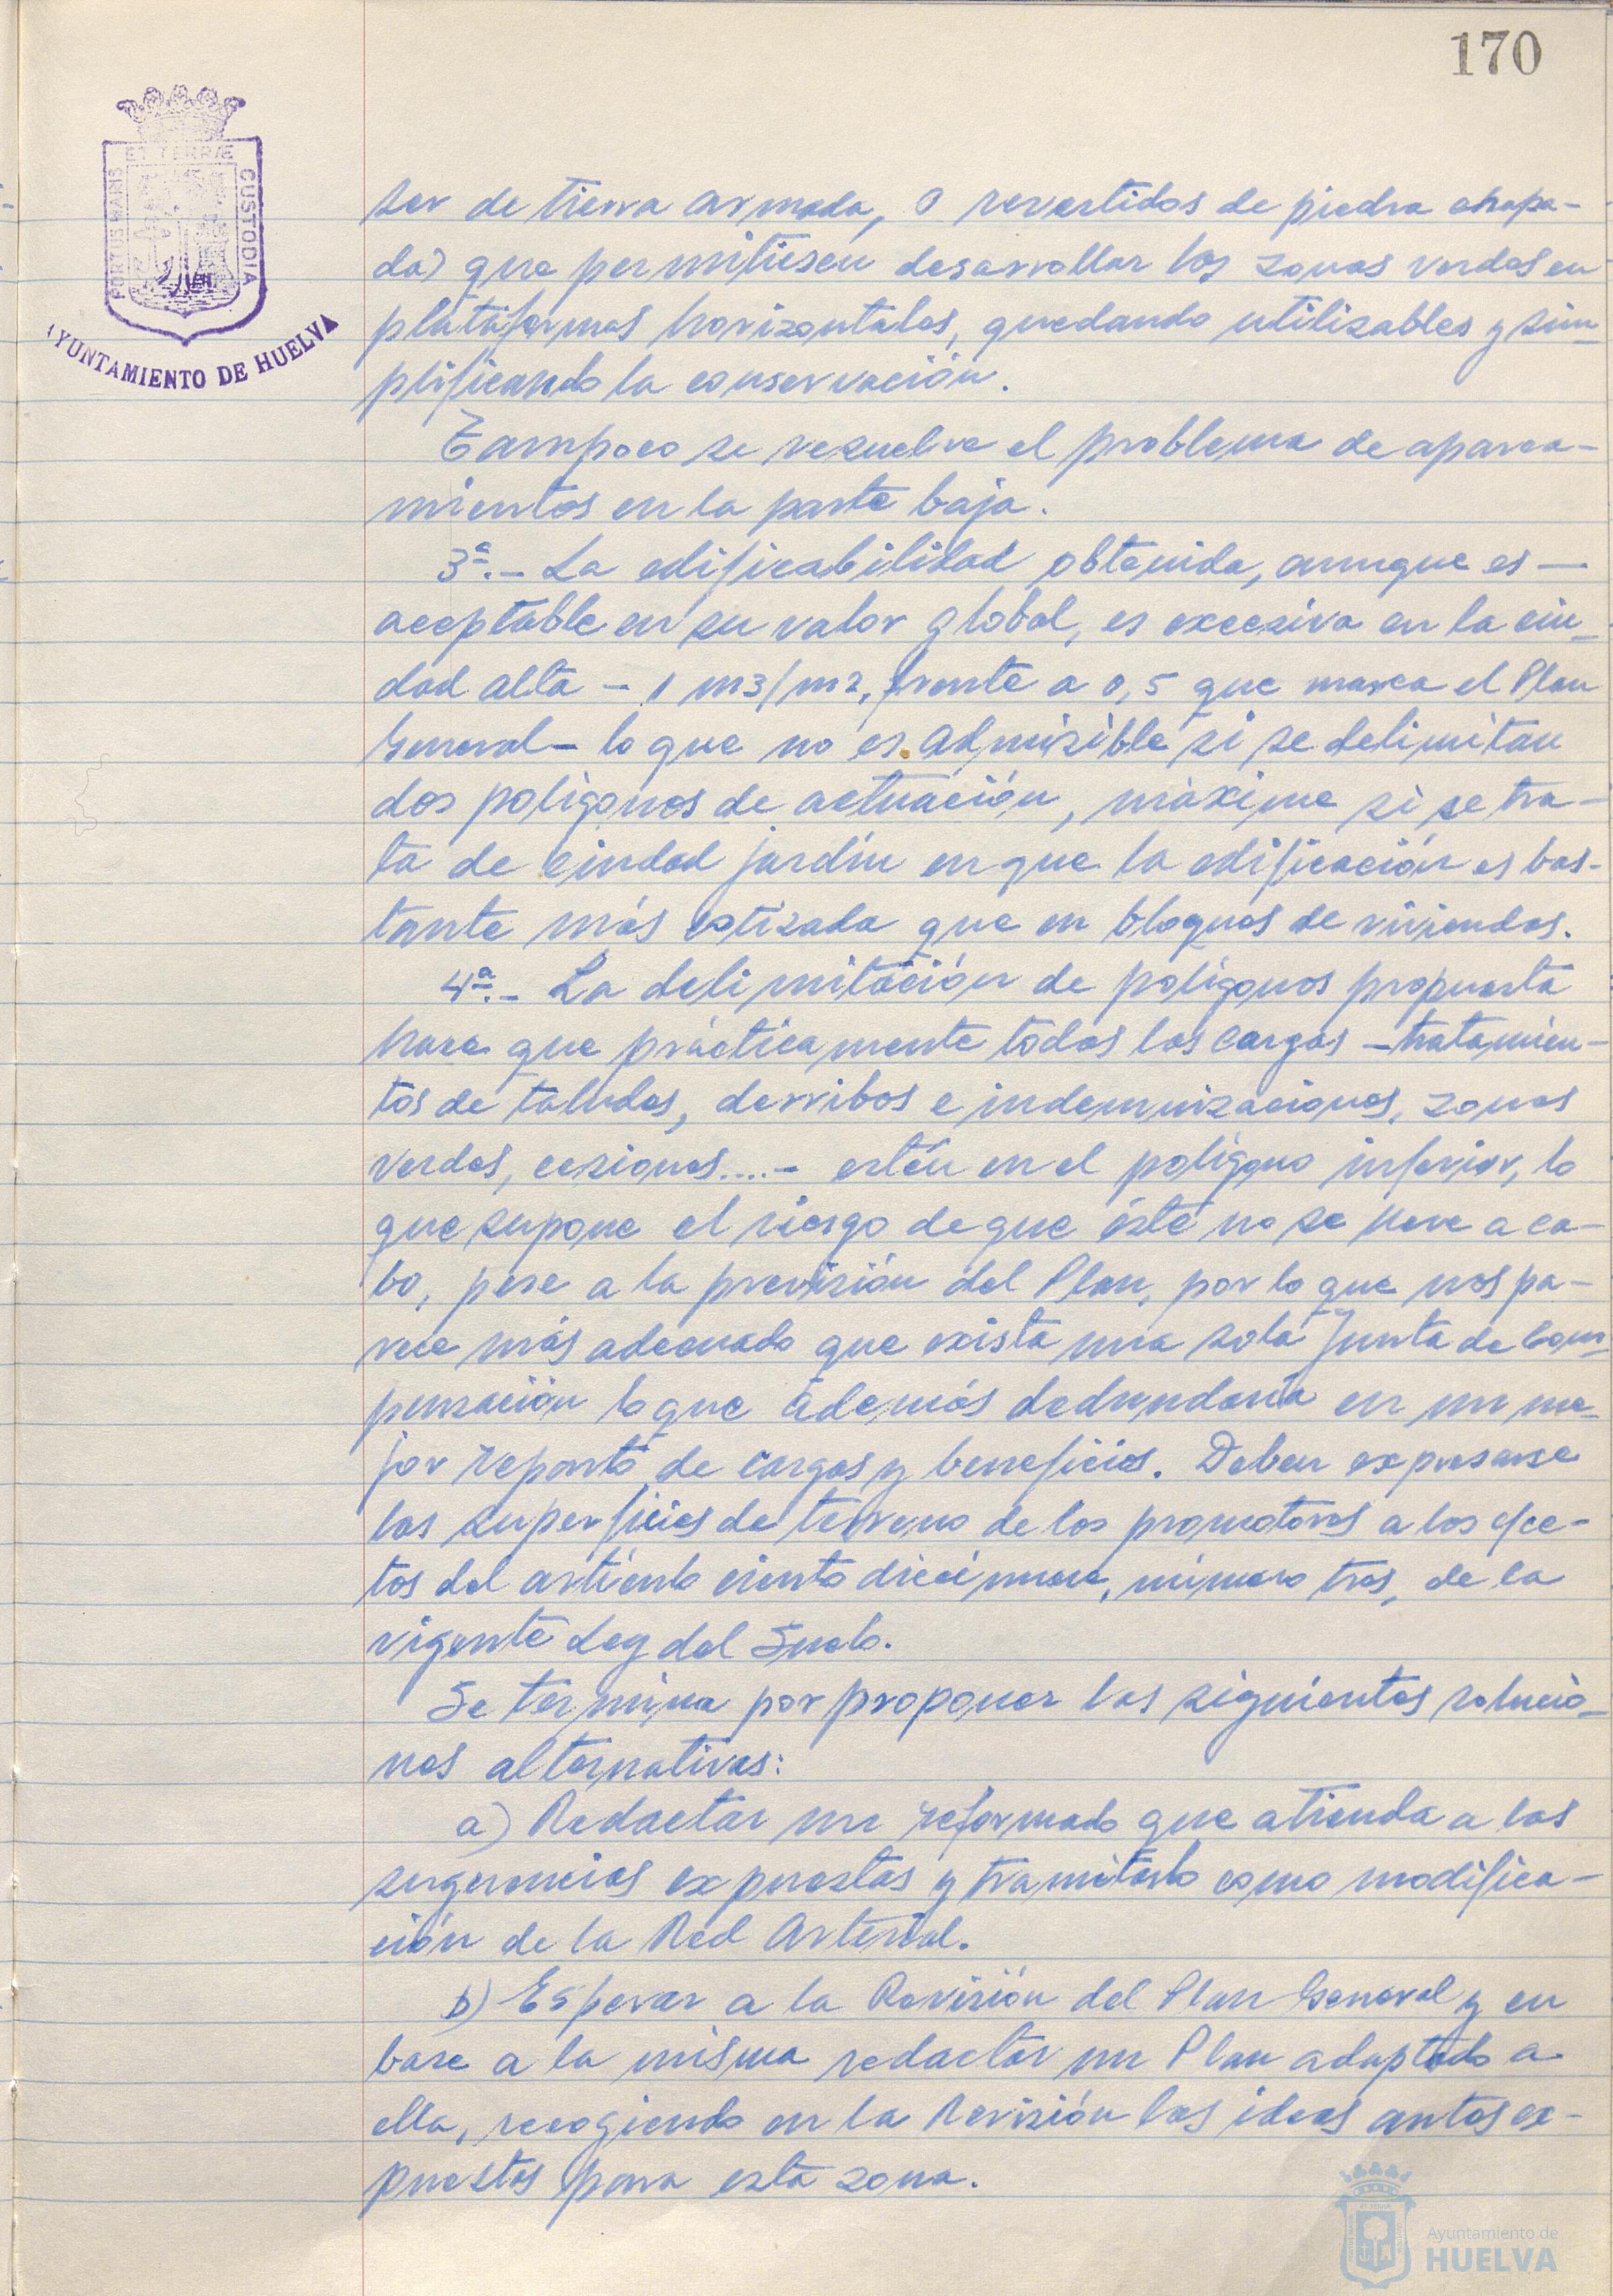 170
PORTUS MARIS
ET TERRÆ
CUSTODIA
AYUNTAMIENTO DE HUELVA
ser de tierra armada, o revestidos de piedra chapa-
da) que permitiesen desarrollar las zonas verdes en
plataformas horizontales, quedando utilizables y sim-
plificando la conservación.
Tampoco se resuelve el problema de aparca-
mientos en la parte baja.
3ª.- La edificabilidad obtenida, aunque es -
aceptable en su valor global, es excesiva en la ciu-
dad alta - 1 m3/m2, frente a 0,5 que marca el Plan
General - lo que no es admisible si se delimitan
dos polígonos de actuación, máxime si se tra-
ta de ciudad jardín en que la edificación es bas-
tante más cotizada que en bloques de viviendas.
4ª.- La delimitación de polígonos propuesta
hace que prácticamente todas las cargas - tratamien-
tos de taludes, derribos e indemnizaciones, zonas
verdes, cesiones....- estén en el polígono inferior, lo
que supone el riesgo de que éste no se lleve a ca-
bo, pese a la previsión del Plan, por lo que nos pa-
rece más adecuado que exista una sola Junta de Com-
pensación lo que además dedundaría en un me-
jor reparto de cargas y beneficios. Deben expresarse
las superficies de terreno de los promotores a los efec-
tos del artículo ciento diecinueve, número tres, de la
vigente Ley del Suelo.
Se termina por proponer las siguientes solucio-
nes alternativas:
a) Redactar un reformado que atienda a las
sugerencias expuestas y tramitarlo como modifica-
ción de la Red Arterial.
b) Esperar a la Revisión del Plan General y en
base a la misma redactar un Plan adaptado a
ella, recogiendo en la Revisión las ideas antes ex-
puestas para esta zona.
Ayuntamiento de
HUELVA